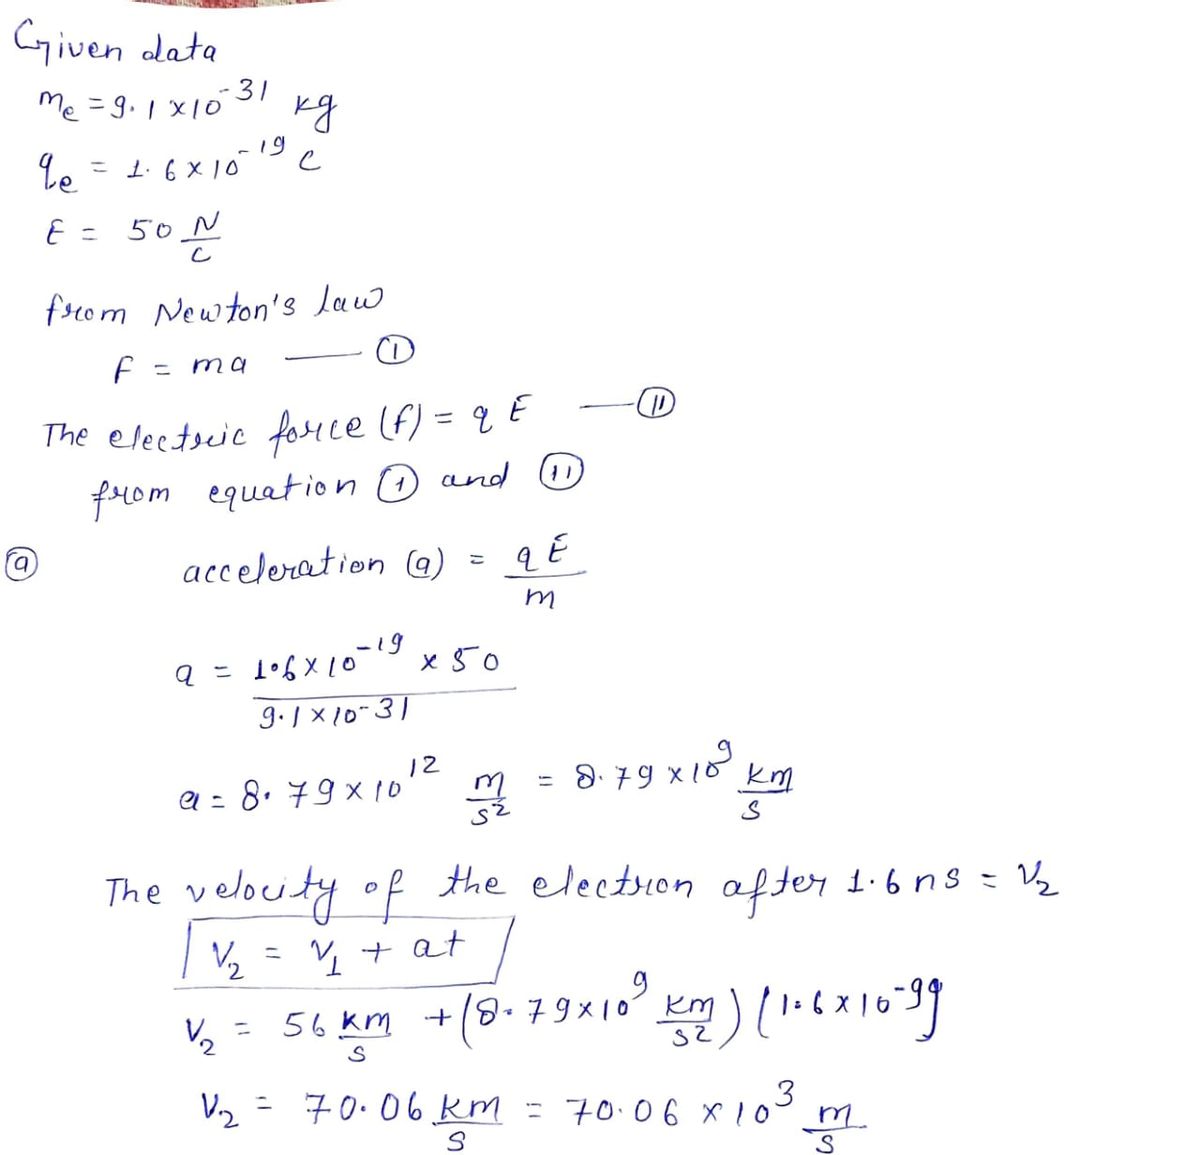 Given data
me = 9.1 × 10^-31 kg
qe = 1.6 × 10^-19 C
E = 50 N/C
from Newton's law
F = ma —— ①
The electric force (f) = q E —— ⑪
from equation ① and ⑪
ⓐ acceleration (a) = qE/m
a = 1.6 × 10^-19 × 50 / 9.1 × 10^-31
a = 8.79 × 10^12 m/s² = 8.79 × 10^9 km/s
The velocity of the electron after 1.6 ns = V₂
V₂ = V₁ + at
V₂ = 56 km/s + (8.79 × 10^9 km/s²) (1.6 × 10^-9 s)
V₂ = 70.06 km/s = 70.06 × 10³ m/s